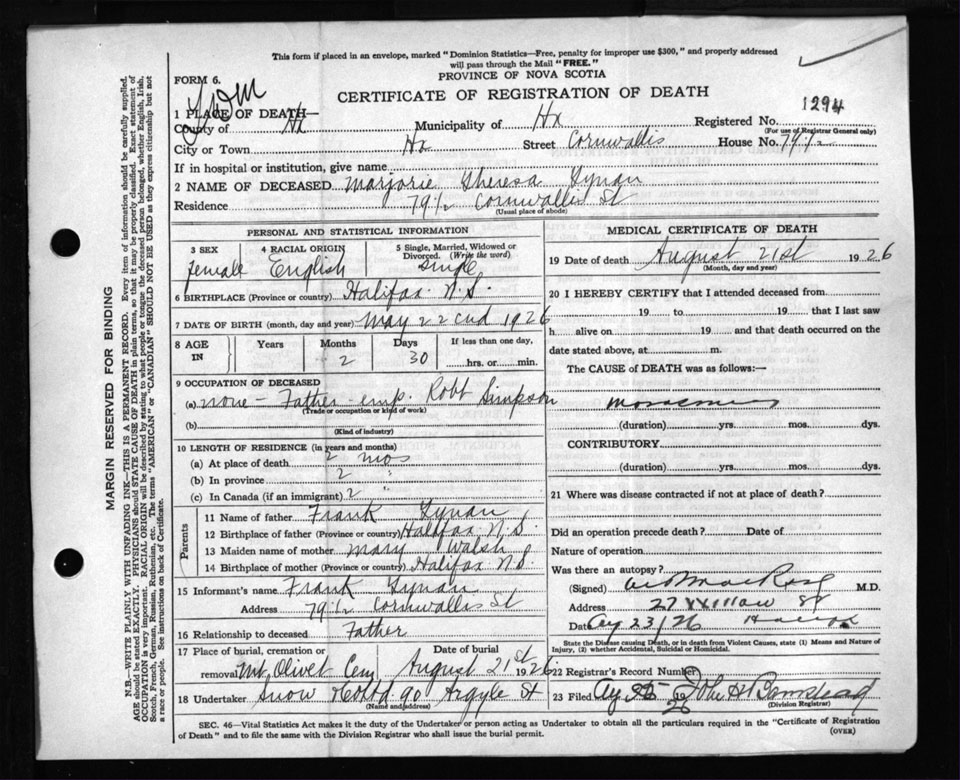 This form if placed in an envelope, marked "Dominion Statistics—Free, penalty for improper use $300," and properly addressed
will pass through the Mail "FREE."
PROVINCE OF NOVA SCOTIA
FORM 6.
CERTIFICATE OF REGISTRATION OF DEATH
1294
1 PLACE OF DEATH—
County of Hx Municipality of Hx Registered No.
(For use of Registrar General only)
City or Town Hx Street Cornwallis House No. 79 1/2
If in hospital or institution, give name
2 NAME OF DECEASED Marjorie Theresa Lynan
Residence 79 1/2 Cornwallis St
(Usual place of abode)
PERSONAL AND STATISTICAL INFORMATION
3 SEX 4 RACIAL ORIGIN 5 Single, Married, Widowed or Divorced. (Write the word)
female English Single
6 BIRTHPLACE (Province or country) Halifax N.S.
7 DATE OF BIRTH (month, day and year) May 22cnd 1926
8 AGE IN Years Months Days If less than one day,
2 30 hrs. or min.
9 OCCUPATION OF DECEASED
(a) none - Father - emp. Robt Simpson
(Trade or occupation or kind of work)
(b)
(Kind of industry)
10 LENGTH OF RESIDENCE (in years and months)
(a) At place of death 2 mos
(b) In province 2 "
(c) In Canada (if an immigrant) 2 "
Parents
11 Name of father Frank Lynan
12 Birthplace of father (Province or country) Halifax N.S.
13 Maiden name of mother Mary Walsh
14 Birthplace of mother (Province or country) Halifax N.S.
15 Informant's name Frank Lynan
Address 79 1/2 Cornwallis St
16 Relationship to deceased Father
17 Place of burial, cremation or removal Mt Olivet Cem Date of burial August 21st 1926
18 Undertaker Snow & Co Ltd 90 Argyle St
(Name and address)
MEDICAL CERTIFICATE OF DEATH
19 Date of death August 21st 1926
(Month, day and year)
20 I HEREBY CERTIFY that I attended deceased from
19 to 19 that I last saw
h alive on 19 and that death occurred on the
date stated above, at m.
The CAUSE of DEATH was as follows:—
(duration) yrs. mos. dys.
CONTRIBUTORY
(duration) yrs. mos. dys.
21 Where was disease contracted if not at place of death?
Did an operation precede death? Date of
Nature of operation
Was there an autopsy?
(Signed) M.D.
Address 27 Willow St
Date Aug 23/26 Halifax
State the Disease causing Death, or in death from Violent Causes, state (1) Means and Nature of
Injury, (2) whether Accidental, Suicidal or Homicidal.
22 Registrar's Record Number
23 Filed Aug 19 26 John H
(Division Registrar)
SEC. 46—Vital Statistics Act makes it the duty of the Undertaker or person acting as Undertaker to obtain all the particulars required in the "Certificate of Registration
of Death" and to file the same with the Division Registrar who shall issue the burial permit.
(OVER)
MARGIN RESERVED FOR BINDING
N.B.—WRITE PLAINLY WITH UNFADING INK—THIS IS A PERMANENT RECORD. Every item of information should be carefully supplied.
AGE should be stated EXACTLY. PHYSICIANS should STATE CAUSE OF DEATH in plain terms, so that it may be properly classified. Exact statement of
OCCUPATION is very important. RACIAL ORIGIN will be described by stating to what people or tongue the deceased person belonged, whether English, Irish,
Scotch, French, German, Russian, Ruthenian, etc. The terms "AMERICAN" or "CANADIAN" SHOULD NOT BE USED as they express citizenship but not
a race or people. See instructions on back of Certificate.